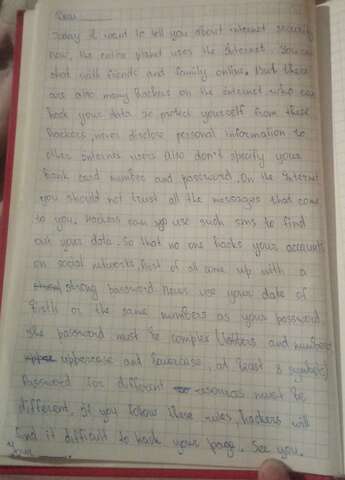 Dear
Today I want to tell you about internet security
now, the entire planet uses the Internet. You can
chat with friends and family online. But there
are also many hackers on the internet who can
hack your data. So protect yourself from these
hackers, never disclose personal information to
other internet users. Also don't specify your
bank card number and password. On the Internet
you should not trust all the messages that come
to you. Hackers can use such sms to find
out your data. So that no one hacks your accounts
on social networks, first of all come up with a
strong password. never use your date of
birth or the same numbers as your password
the password must be complex (letters and numbers,
uppercase and lowercase, at least 8 symbols)
Password for different must be
different. If you follow these rules, hackers will
find it difficult to hack your page. See you.